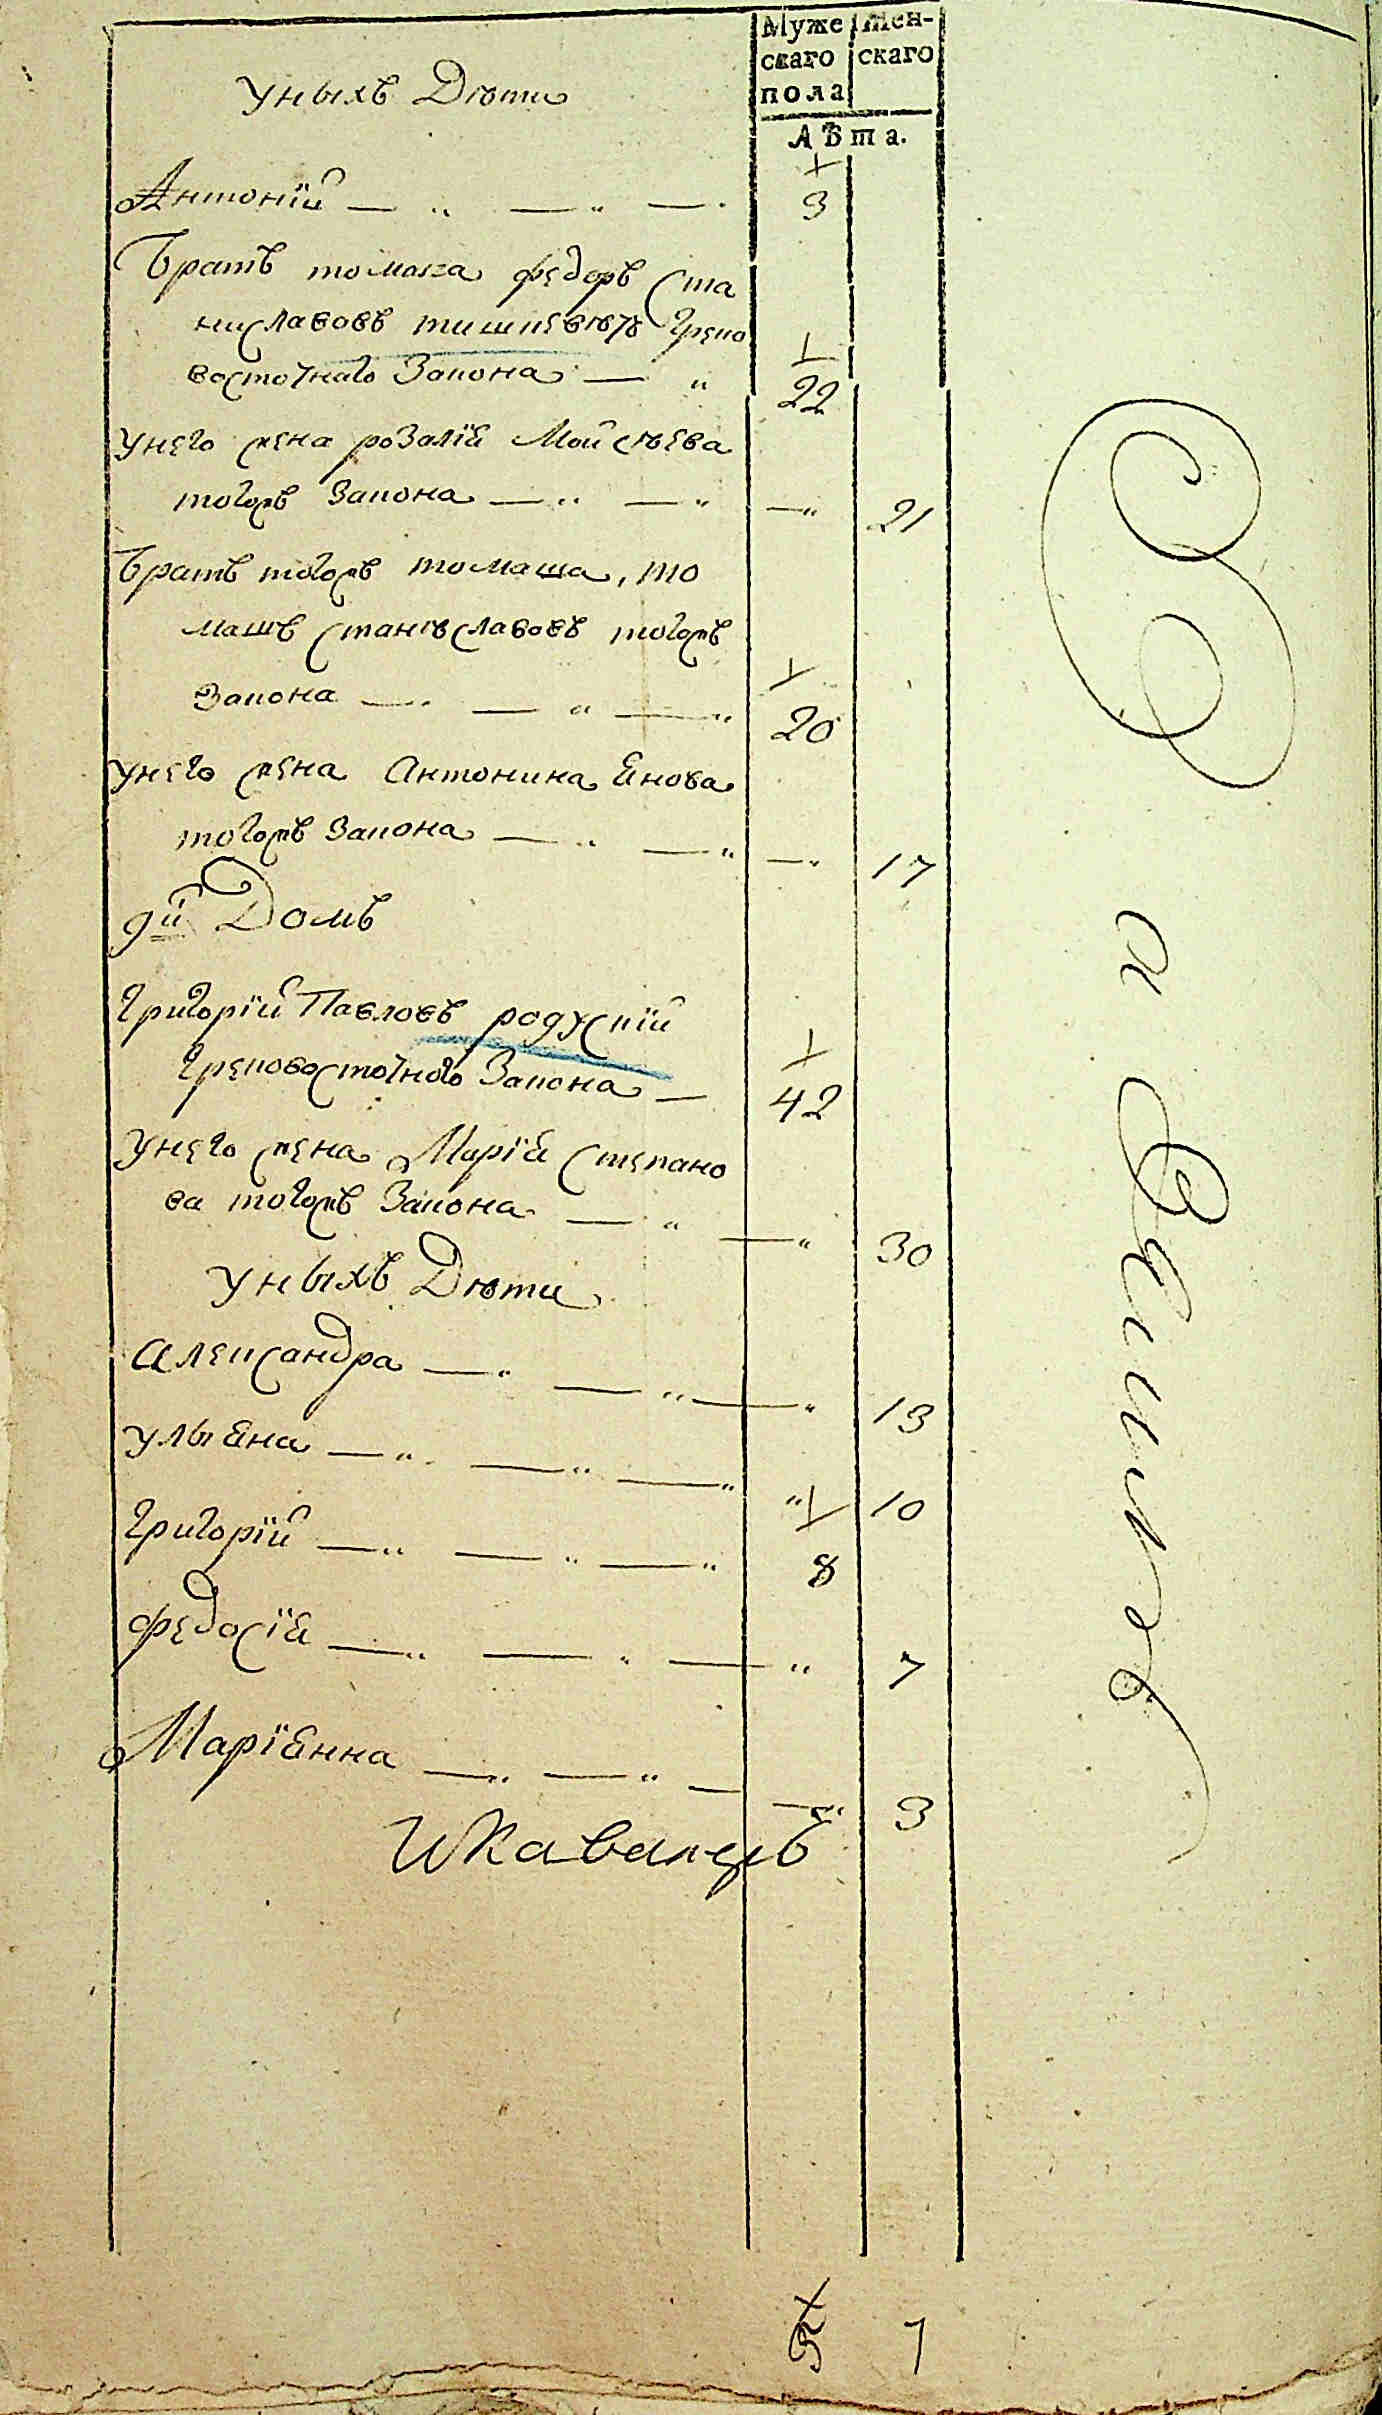 Муже
скаго
пола
Жен-
скаго
Лѣта.
У ныхъ Дѣти
Антоній — „ — „ — 3
Братъ томаша федоръ Ста
ниславовъ тишкевичъ Греко
восточнаго Закона — „ 22
У него жена розалія Мойсѣева
тогожъ Закона — „ — „ — „ 21
Братъ тогожъ томаша, то
машъ Станиславовъ тогожъ
Закона — „ — „ — „ 20
У него жена Антонина Янова
тогожъ Закона — „ — „ — „ 17
9й Домъ
Григорій Павловъ родускій
Грековосточного Закона — 42
У него жена Марія Степано
ва тогожъ Закона — „ — „ 30
У ныхъ Дѣти
Александра — „ — „ — „ 13
Ульяна — „ — „ — „ „ 10
Григорій — „ — „ — „ 8
Федосія — „ — „ — „ 7
Маріянна — „ — „ — — „ 3
5 7